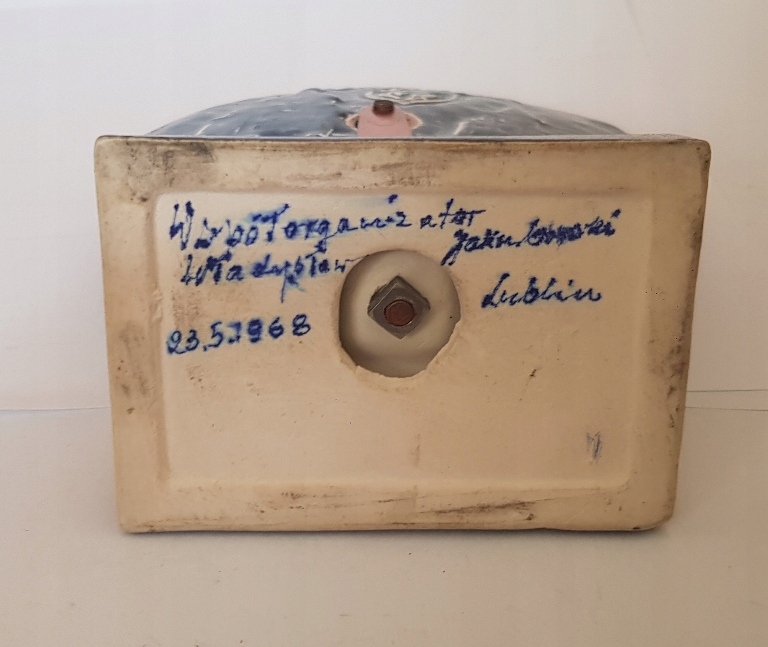 Współorganizator
Władysław Jakubowski
Lublin
23.5.1968